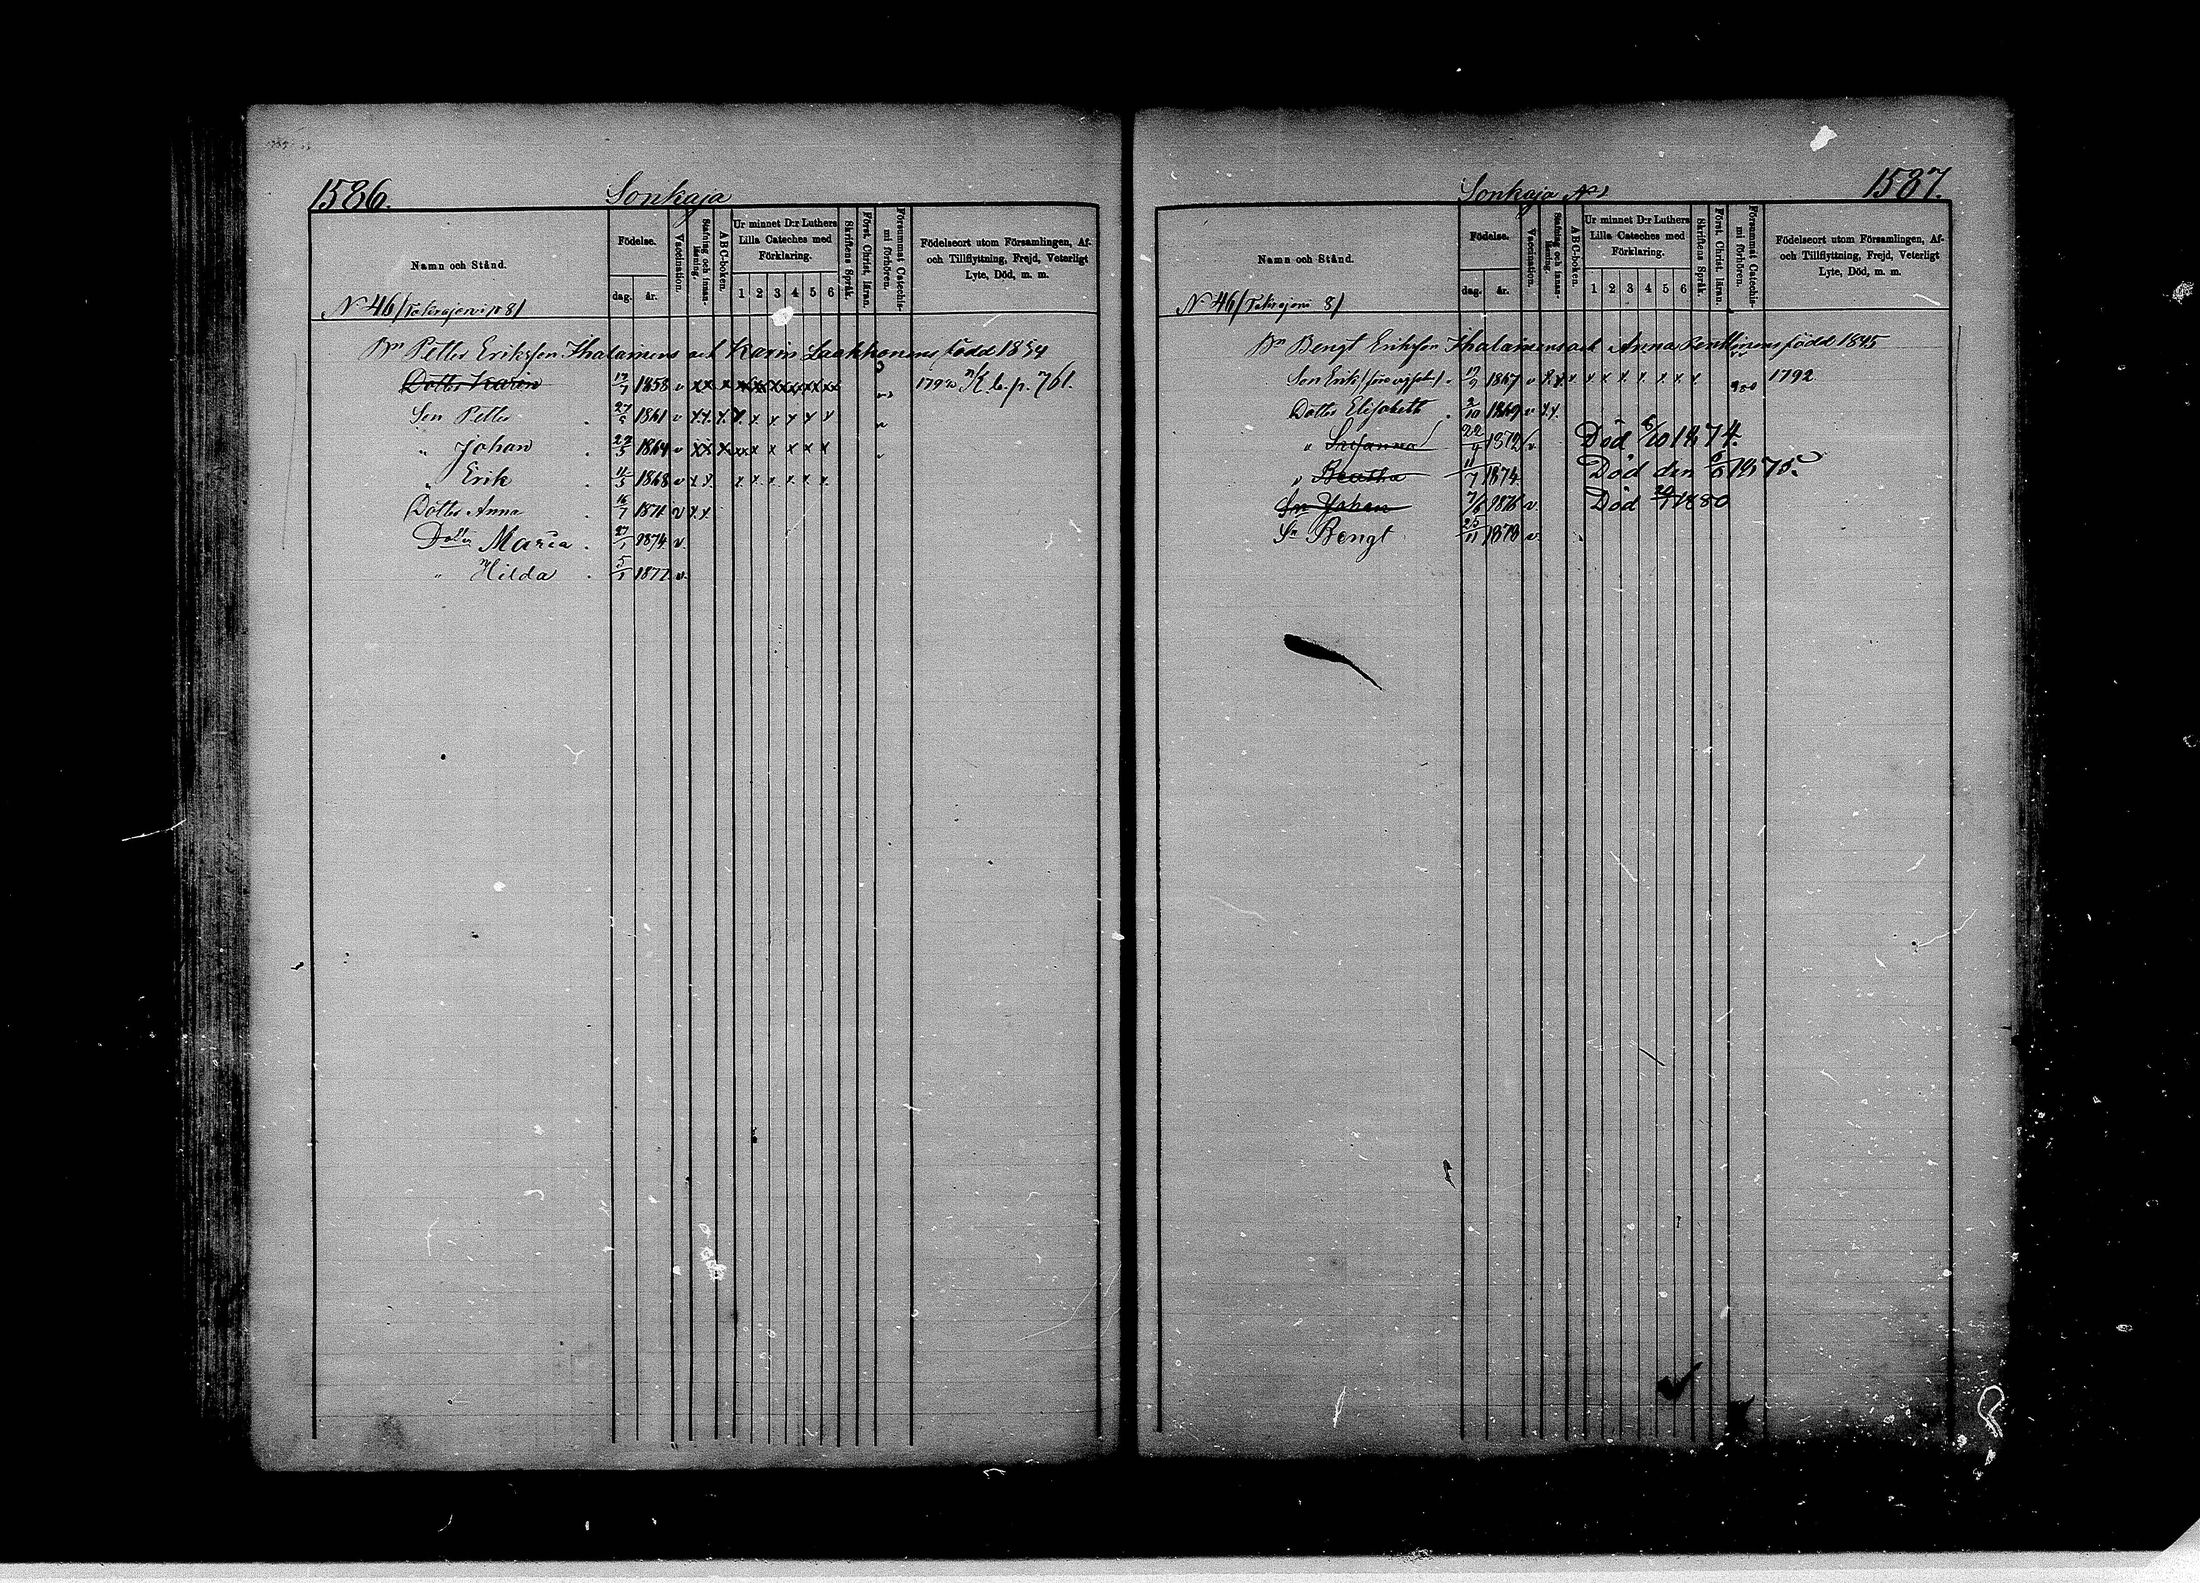 1586.
Sonkaja
Namn och Stånd.
Födelse.
dag. år.
Vaccination.
Stafning och innanläsning.
ABC-boken.
Ur minnet D:r Luthers Lilla Cateches med Förklaring.
1 2 3 4 5 6
Skriftens Språk.
Först. Christ. läran.
Försummat Catechismi förhören.
Födelseort utom Församlingen, Af- och Tillflyttning, Frejd, Veterligt Lyte, Död, m. m.
N 46/
Bn Petter Eriksson Ihalainens och Karin Laakkonens född 1834
Dotter Karin 1858 v xx x 1792 K.b.p. 761.
Son Petter 1861 v x.x. x. x. x x x x x
" Johan 1864 v xx x x x x x x
" Erik 1868 v x x. x x. x. x. x. x.
Dotter Anna 16/7 1871 v x x
Dotter Maria 27/1 1874 v.
" Hilda 5/1 1877 v.
1587.
Sonkaja
Namn och Stånd.
Födelse.
dag. år.
Vaccination.
Stafning och innanläsning.
ABC-boken.
Ur minnet D:r Luthers Lilla Cateches med Förklaring.
1 2 3 4 5 6
Skriftens Språk.
Först. Christ. läran.
Försummat Catechismi förhören.
Födelseort utom Församlingen, Af- och Tillflyttning, Frejd, Veterligt Lyte, Död, m. m.
N 46/
Bn Bengt Eriksson Ihalainens och Anna född 1845
Son Erik 1867 v x. x. x x x x. x. x. x. 1792
Dotter Elisabeth 2/10 1869 v x x.
" Susanna 22/9 1872 v. Död 6/10 1874.
" Beatha 11/7 1874 Död den 1875.
Sn Johan 7/6 1876 v. Död 1880
Sn Bengt 25/11 1878 v.